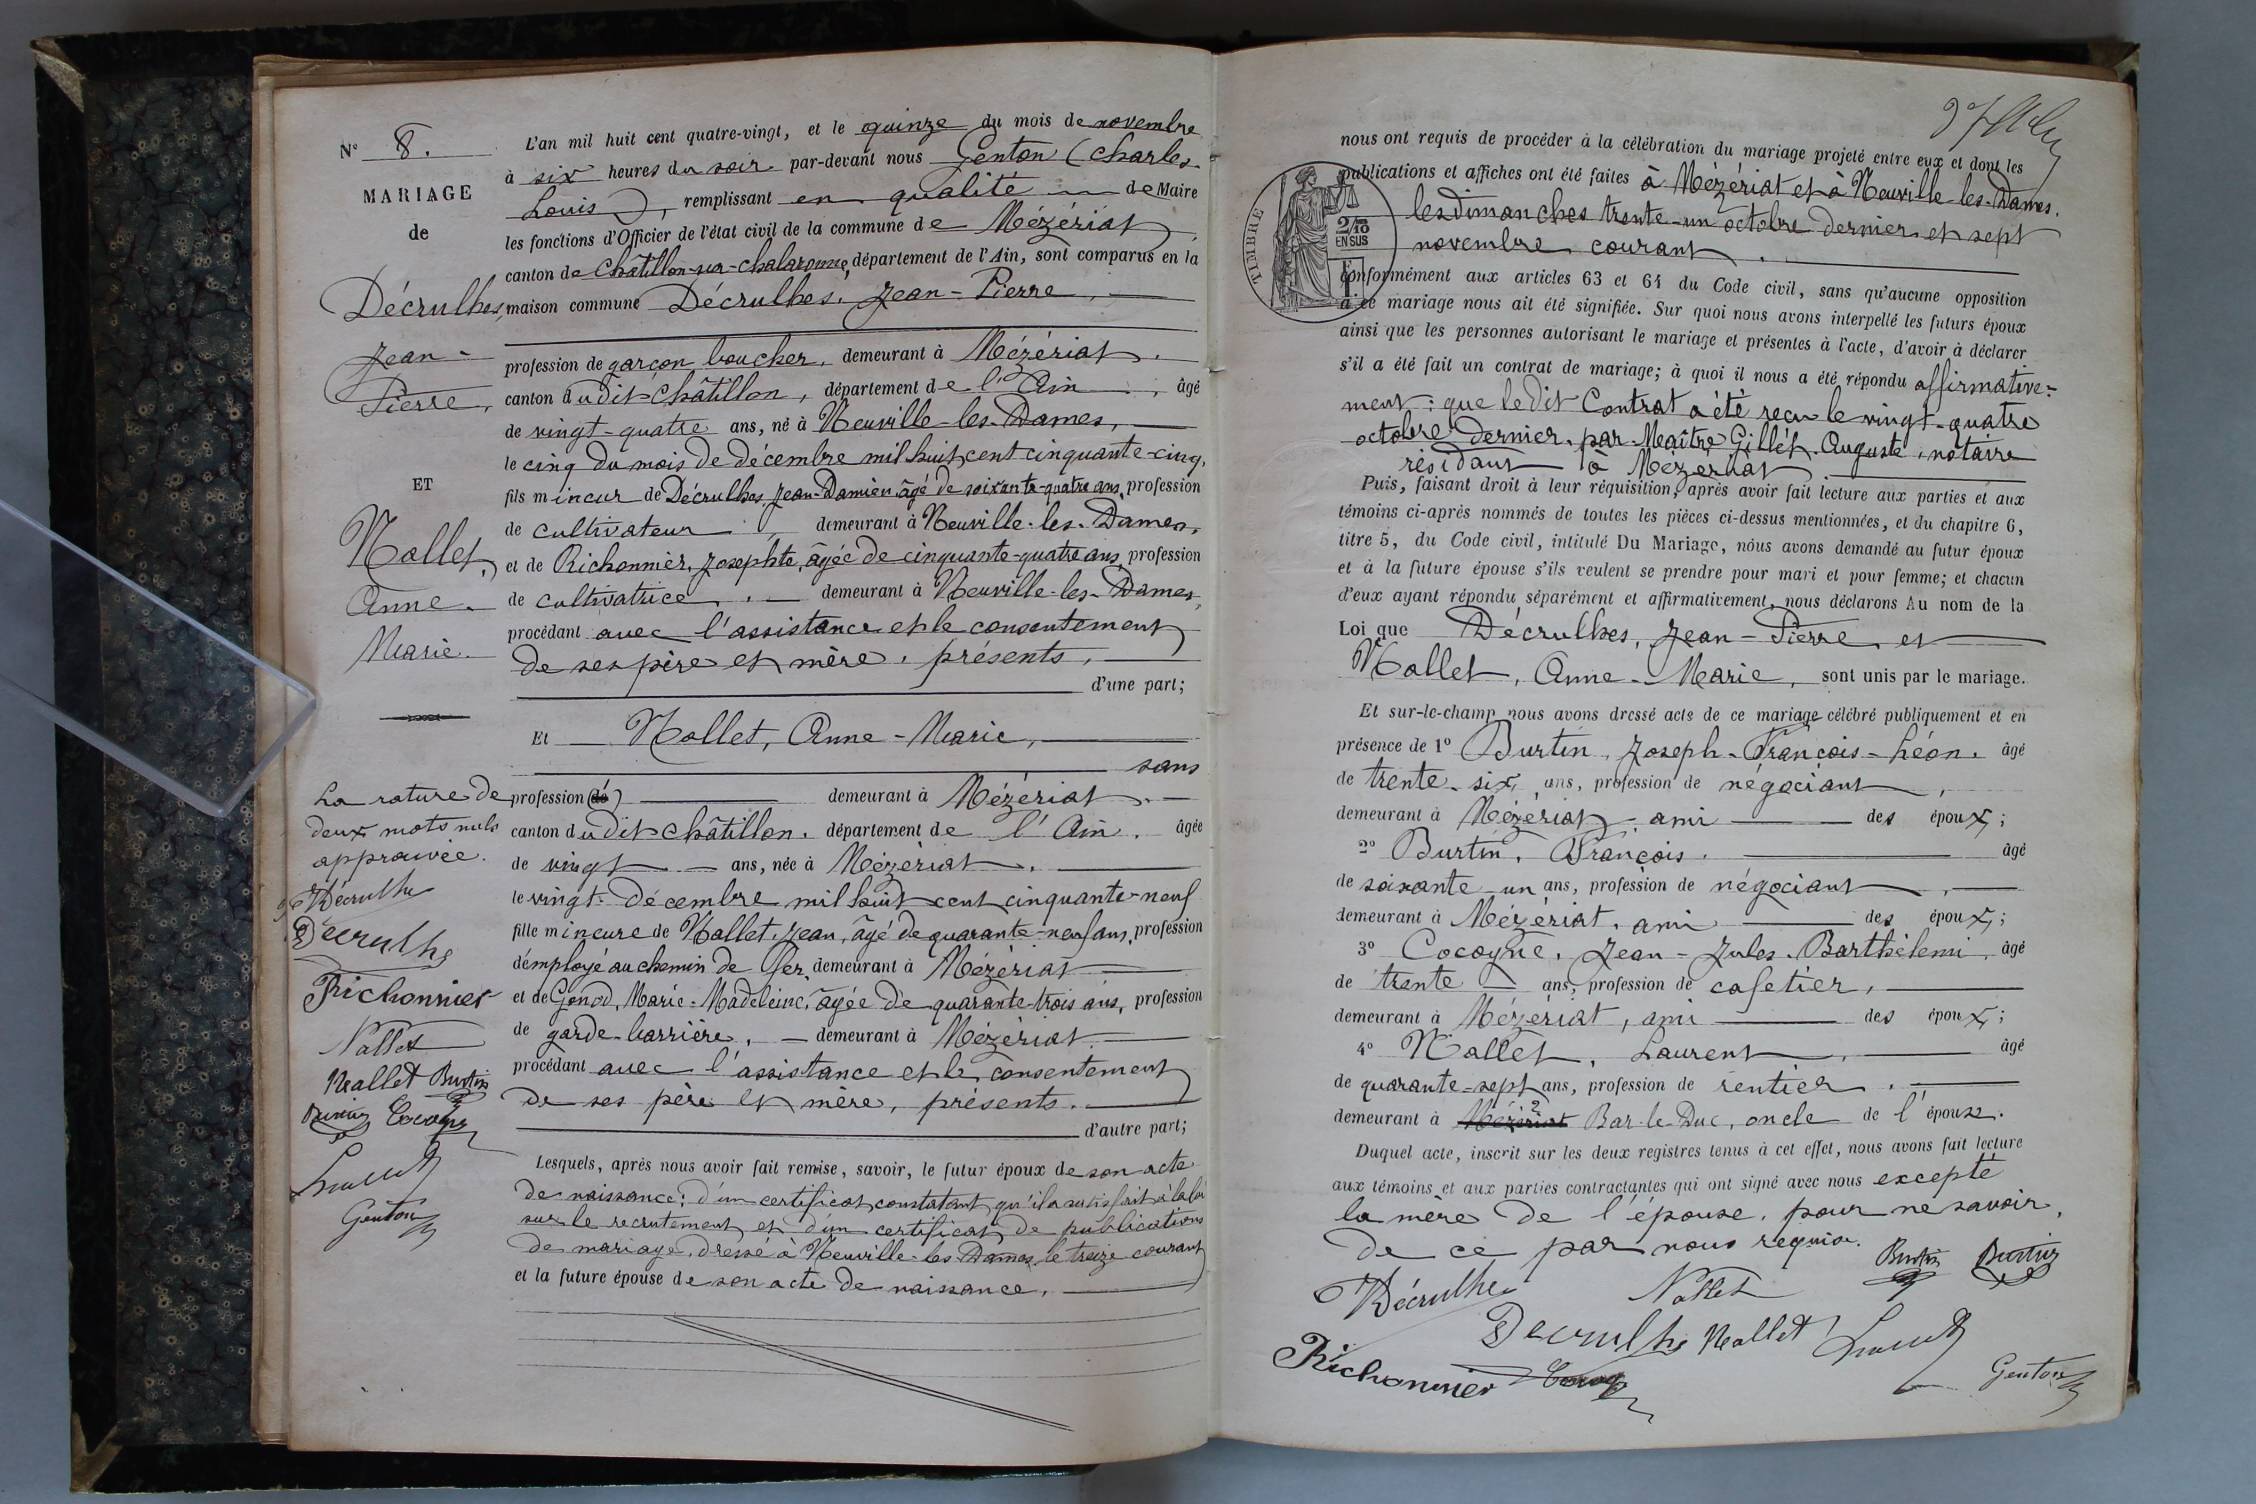 N° 8.
MARIAGE
de
Décrulhes,
Jean-
Pierre,
ET
Nallet,
Anne-
Marie.
La rature de
deux mots nuls
approuvée.
Décrulhe
Decrulhe
Richonnier
Nallet
Nallet Burtin
Burtin Cocogne
Genton
L'an mil huit cent quatre-vingt, et le quinze du mois de novembre
à six heures du soir par-devant nous Genton (Charles-
Louis), remplissant en qualité de Maire
les fonctions d'Officier de l'état civil de la commune de Mézériat,
canton de Châtillon-sur-Chalaronne, département de l'Ain, sont comparus en la
maison commune Décrulhes, Jean-Pierre,
profession de garçon boucher, demeurant à Mézériat.
canton dudit Châtillon, département de l'Ain, âgé
de vingt-quatre ans, né à Neuville-les-Dames,
le cinq du mois de décembre mil huit cent cinquante-cinq,
fils mineur de Décrulhes, Jean-Damien, âgé de soixante-quatre ans, profession
de cultivateur, demeurant à Neuville-les-Dames,
et de Richonnier, Josephte, âgée de cinquante-quatre ans, profession
de cultivatrice, demeurant à Neuville-les-Dames,
procédant avec l'assistance et le consentement
de ses père et mère, présents,
d'une part;
Et Nallet, Anne-Marie,
sans
profession (de) demeurant à Mézériat.
canton dudit Châtillon. département de l'Ain. âgée
de vingt ans, née à Mézériat.
le vingt décembre mil huit cent cinquante-neuf
fille mineure de Nallet, Jean, âgé de quarante-neuf ans, profession
d'employé au chemin de fer, demeurant à Mézériat
et de Genod, Marie-Madeleine, âgée de quarante-trois ans, profession
de garde-barrière, demeurant à Mézériat
procédant avec l'assistance et le consentement
de ses père et mère, présents.
d'autre part;
Lesquels, après nous avoir fait remise, savoir, le futur époux de son acte
de naissance; d'un certificat constatant qu'il a satisfait à la loi
sur le recrutement et d'un certificat de publications
de mariage, dressé à Neuville-les-Dames le treize courant
et la future épouse de son acte de naissance.
TIMBRE
2/10
EN SUS
nous ont requis de procéder à la célébration du mariage projeté entre eux et dont les
publications et affiches ont été faites à Mézériat et à Neuville-les-Dames.
les dimanches trente-un octobre dernier et sept
novembre courant.
conformément aux articles 63 et 64 du Code civil, sans qu'aucune opposition
à ce mariage nous ait été signifiée. Sur quoi nous avons interpellé les futurs époux
ainsi que les personnes autorisant le mariage et présentes à l'acte, d'avoir à déclarer
s'il a été fait un contrat de mariage; à quoi il nous a été répondu affirmative-
ment: que ledit Contrat a été reçu le vingt-quatre
octobre dernier, par Maître Gillet, Auguste, notaire
résidant à Mézériat.
Puis, faisant droit à leur réquisition, après avoir fait lecture aux parties et aux
témoins ci-après nommés de toutes les pièces ci-dessus mentionnées, et du chapitre 6,
titre 5, du Code civil, intitulé Du Mariage, nous avons demandé au futur époux
et à la future épouse s'ils veulent se prendre pour mari et pour femme; et chacun
d'eux ayant répondu séparément et affirmativement, nous déclarons Au nom de la
Loi que Décrulhes, Jean-Pierre, et
Nallet, Anne-Marie, sont unis par le mariage.
Et sur-le-champ nous avons dressé acte de ce mariage célébré publiquement et en
présence de 1° Burtin, Joseph-François-Léon. âgé
de trente-six ans, profession de négociant,
demeurant à Mézériat, ami des époux;
2° Burtin, François. âgé
de soixante-un ans, profession de négociant,
demeurant à Mézériat, ami des époux;
3° Cocogne, Jean-Jules-Barthélemi, âgé
de trente ans, profession de cafetier,
demeurant à Mézériat, ami des époux;
4° Nallet, Laurent, âgé
de quarante-sept ans, profession de rentier.
demeurant à Mézériat Bar-le-Duc, oncle de l'épouse.
Duquel acte, inscrit sur les deux registres tenus à cet effet, nous avons fait lecture
aux témoins et aux parties contractantes qui ont signé avec nous excepté
la mère de l'épouse, pour ne savoir,
de ce par nous requise. Burtin Burtin
Décrulhe Nallet
Decrulhe Nallet
Richonnier Cocogne Genton